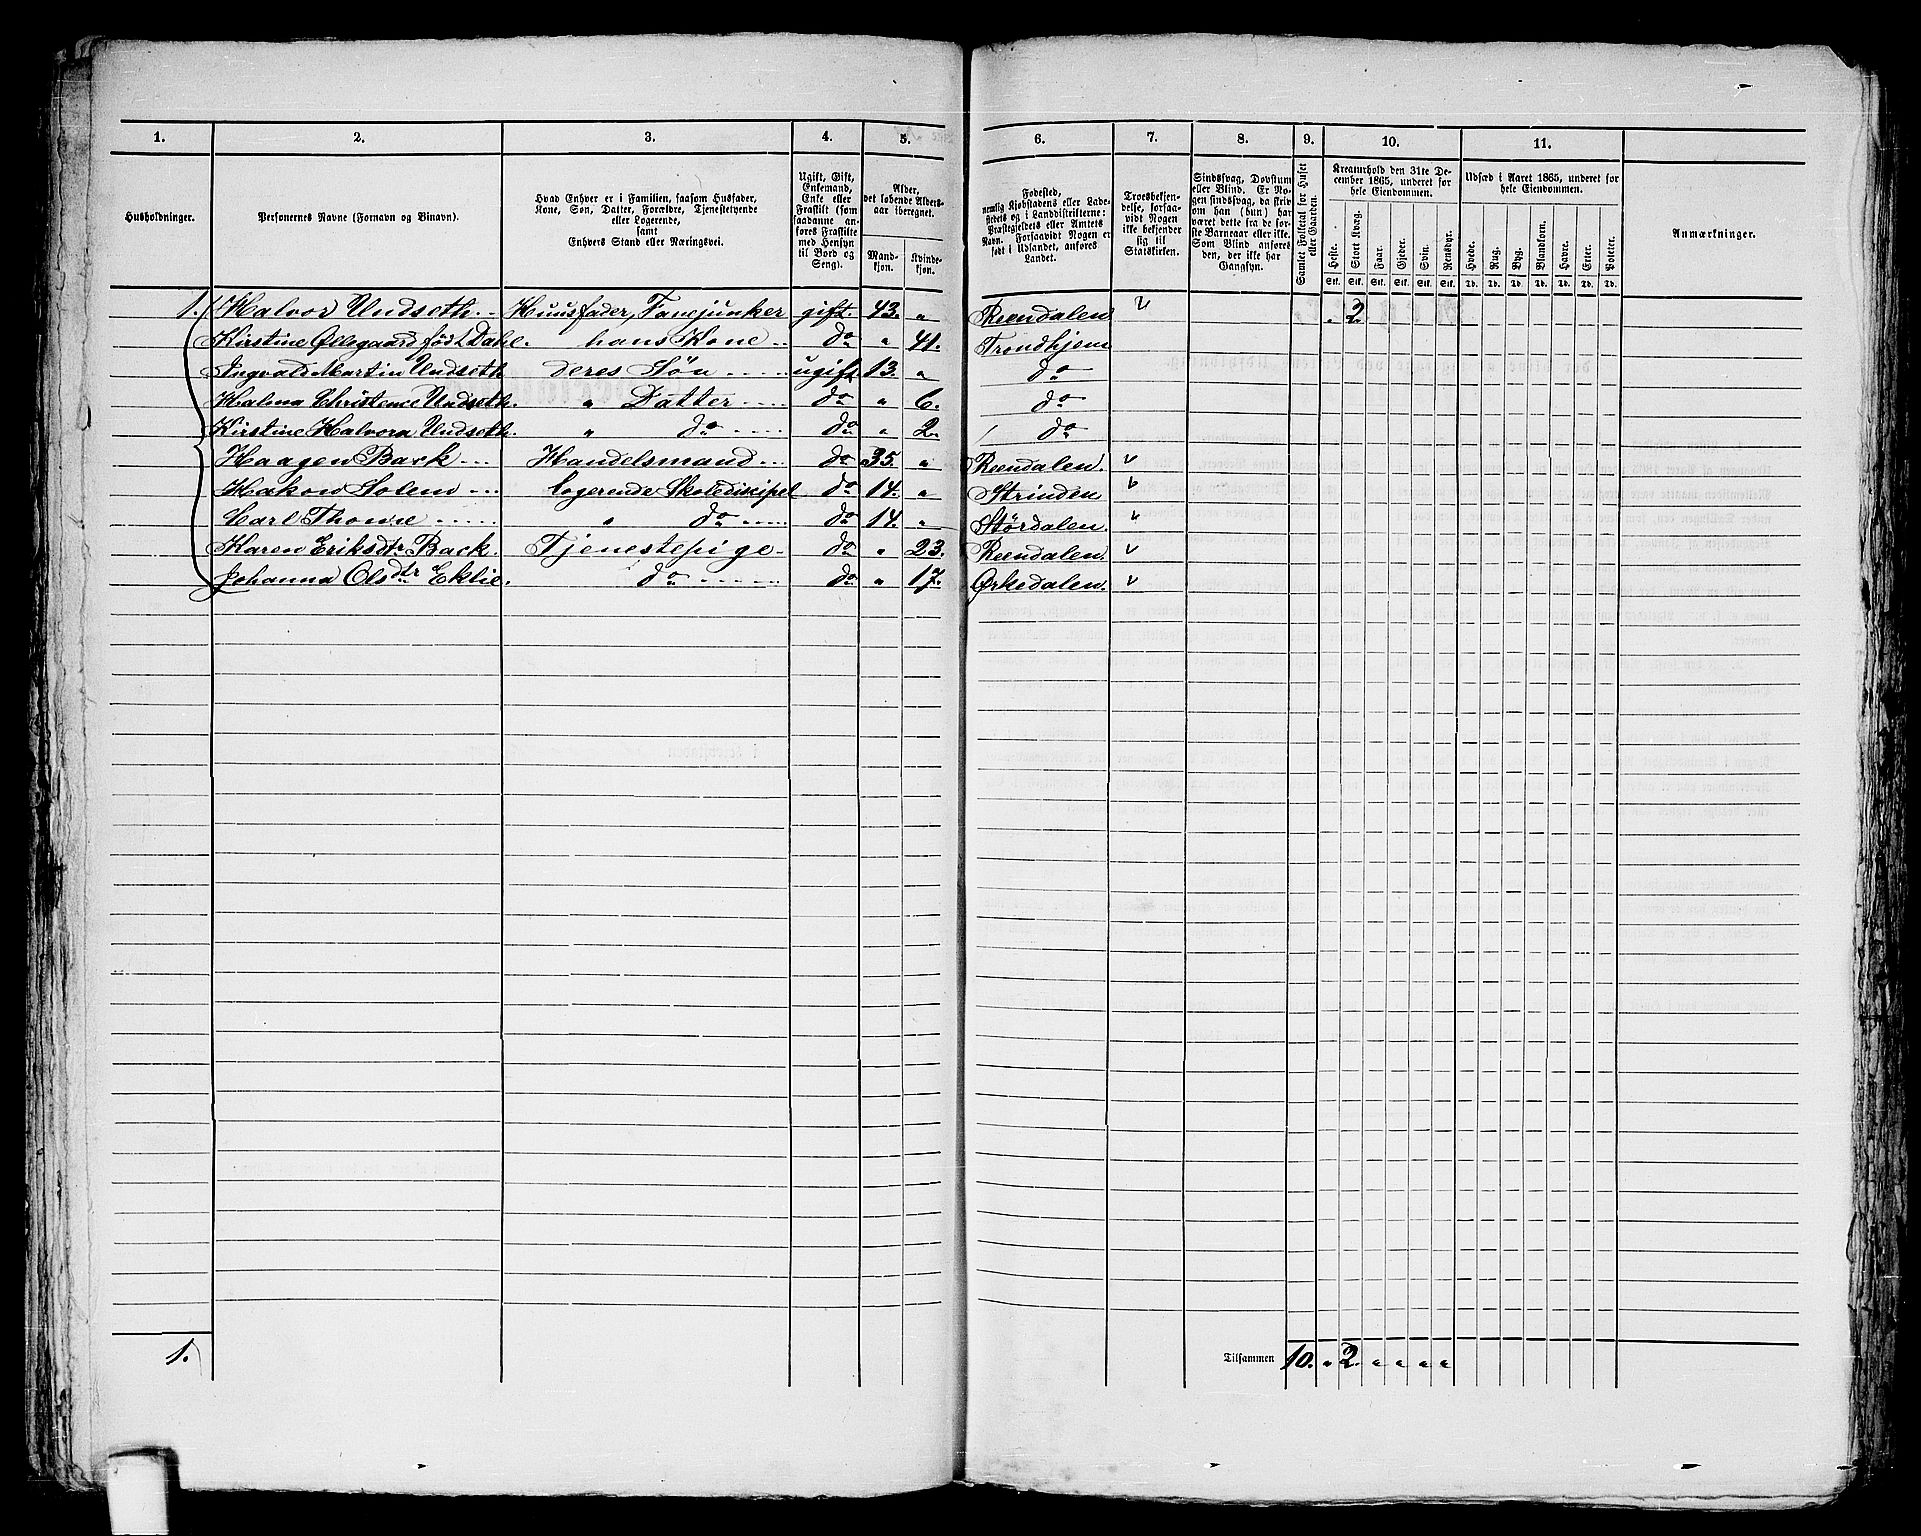 1. 2. 3. 4. 5. 6. 7. 8. 9. 10. 11.
Husholdninger.
Personernes Navne (Fornavn og Binavn).
Hvad Enhver er i Familien, saasom Husfader,
Kone, Søn, Datter, Forældre, Tjenestetyende
eller Logerende,
samt
Enhvers Stand eller Næringsvei.
Ugift, Gift,
Enkemand,
Enke eller
Fraskilt (som
saadanne an-
føres Fraskilte
med Hensyn
til Bord og
Seng).
Alder,
det løbende Alders-
aar iberegnet.
Mand-
kjøn.
Kvinde-
kjøn.
Fødested,
nemlig Kjøbstadens eller Lade-
stedets og i Landdistrikterne:
Præstegjeldets eller Amtets
Navn. Forsaavidt Nogen er
født i Udlandet, anføres
Landet.
Troesbekjen-
delse, forsaa-
vidt Nogen
ikke bekjender
sig til
Statskirken.
Sindssvag, Døvstum
eller Blind. Er No-
gen sindssvag, da skriv
om han (hun) har
været dette fra de før-
ste Barneaar eller ikke.
Som Blind anføres
den, der ikke har
Gangsyn.
Samlet Folketal for Huset
eller Gaarden.
Kreaturhold den 31te De-
cember 1865, underet for
hele Eiendommen.
Heste. Stort Kvæg. Faar. Gjeder. Svin. Rensdyr.
Stk. Stk. Stk. Stk. Stk. Stk.
Udsæd i Aaret 1865, underet for
hele Eiendommen.
Hvede. Rug. Byg. Blandkorn. Havre. Erter. Poteter.
Td. Td. Td. Td. Td. Td. Td.
Anmærkninger.
1. Halvor Undseth. Huusfader, Fanejunker gift. 43. " Reendalen " 2
Kirstine Øllegaard født Dahl hans Kone do " 41. Trondhjem
Ingvald Martin Undseth deres Søn ugift. 13. " do
Halma Christence Undseth. " Datter do " 6. do
Kirstine Halvora Undseth. " do do " 2. do
Haagen Back Handelsmand do 35. " Reendalen.
Hakon Solem logerende Skoledisipel do 14. " Strinden
Carl Thonne " do do 14. " Størdalen.
Karen Eriksdtr Back. Tjenestepige do " 23. Reendalen.
Johanna Olsdtr Eklie. do do " 17. Ørkedalen.
1. Tilsammen 10. " 2. " " " "